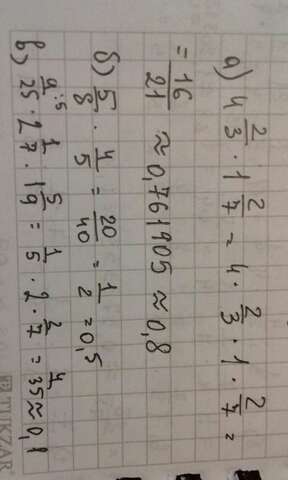 а) 4 2/3 · 1 2/7 = 4 · 2/3 · 1 · 2/7 =
= 16/21 ≈ 0,761905 ≈ 0,8
б) 5/8 · 4/5 = 20/40 = 1/2 = 0,5
в) /25 · 2 1/7 · 1 5/9 = 1/5 · 2 · 2/7 = 4/35 ≈ 0,1
TIKZAR